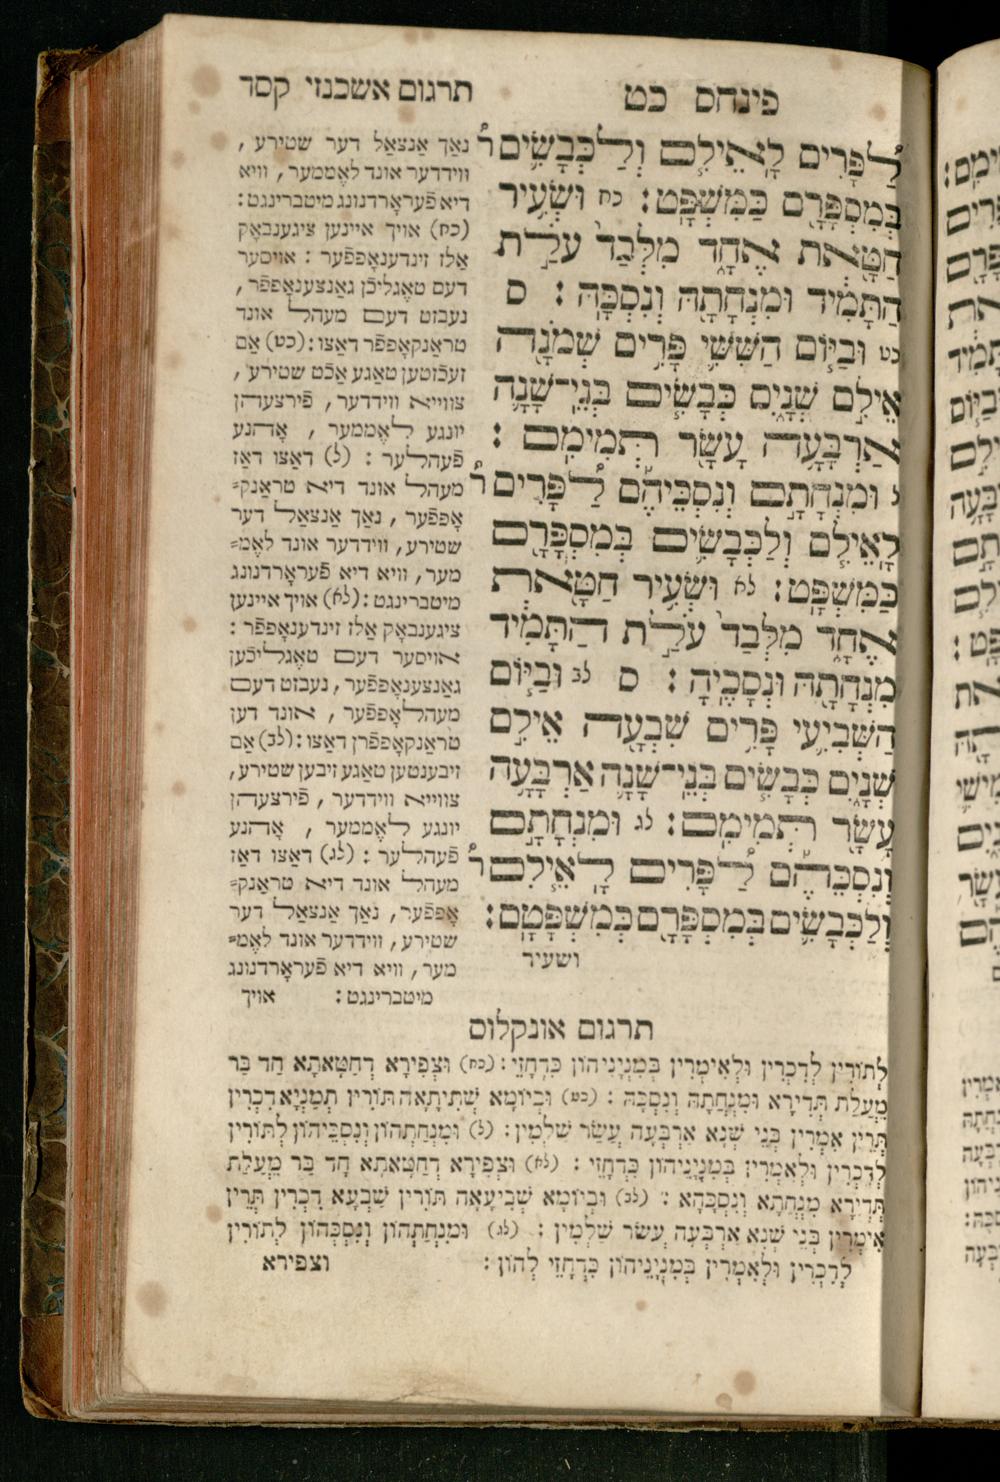 פינחס כט
תרגום אשכנזי קסד
לַפָּרִים לָאֵילִם וְלַכְּבָשִׂים
בְּמִסְפָּרָם כַּמִּשְׁפָּט׃ כח וּשְׂעִיר
חַטָּאת אֶחָד מִלְּבַד עֹלַת
הַתָּמִיד וּמִנְחָתָהּ וְנִסְכָּהּ׃ ס
כט וּבַיּוֹם הַשִּׁשִּׁי פָּרִים שְׁמֹנָה
אֵילִם שְׁנָיִם כְּבָשִׂים בְּנֵי־שָׁנָה
אַרְבָּעָה עָשָׂר תְּמִימִם׃
ל וּמִנְחָתָם וְנִסְכֵּיהֶם לַפָּרִים
לָאֵילִם וְלַכְּבָשִׂים בְּמִסְפָּרָם
כַּמִּשְׁפָּט׃ לא וּשְׂעִיר חַטָּאת
אֶחָד מִלְּבַד עֹלַת הַתָּמִיד
מִנְחָתָהּ וּנְסָכֶיהָ׃ ס לב וּבַיּוֹם
הַשְּׁבִיעִי פָּרִים שִׁבְעָה אֵילִם
שְׁנָיִם כְּבָשִׂים בְּנֵי־שָׁנָה אַרְבָּעָה
עָשָׂר תְּמִימִם׃ לג וּמִנְחָתָם
וְנִסְכֵּהֶם לַפָּרִים לָאֵילִם
וְלַכְּבָשִׂים בְּמִסְפָּרָם כְּמִשְׁפָּטָם׃
ושעיר
נאַך אַנצאַל דער שטירע,
ווידדער אונד לאֶממער, וויא
דיא פֿעראָרדנונג מיטברינגט:
(כח) אויך איינען ציגענבאָק
אַלז זינדענאָפּפֿער: אויסער
דעם טאֶגליכֿן גאַנצענאָפּפֿר,
נעבזט דעם מעהל אונד
טראַנקאָפּפֿר דאַצו: (כט) אַם
זעכֿזטען טאַגע אַכֿט שטירע,
צווייא ווידדער, פֿירצעהן
יונגע לאֶממער, אָהנע
פֿעהלער: (ל) דאַצו דאַז
מעהל אונד דיא טראַנק=
אָפּפֿער, נאַך אַנצאַל דער
שטירע, ווידדער אונד לאֶמ=
מער, וויא דיא פֿעראָרדנונג
מיטברינגט: (לא) אויך איינען
ציגענבאָק אַלז זינדענאָפּפֿר:
אויסער דעם טאֶגליכֿען
גאַנצענאָפּפֿער, נעבזט דעם
מעהלאָפּפֿער, אונד דען
טראַנקאָפּפֿרן דאַצו: (לב) אַם
זיבענטען טאַגע זיבען שטירע,
צווייא ווידדער, פֿירצעהן
יונגע לאֶממער, אָהנע
פֿעהלער: (לג) דאַצו דאַז
מעהל אונד דיא טראַנק=
אָפּפֿער, נאַך אַנצאַל דער
שטירע, ווידדער אונד לאֶמ=
מער, וויא דיא פֿעראָרדנונג
מיטברינגט: אויך
תרגום אונקלוס
לְתוֹרִין לְדִכְרִין וּלְאִימְּרִין בְּמִנְיָנֵיהוֹן כִּדְחָזֵי: (כח) וּצְפִירָא דְחַטָּאתָא חַד בַּר
מֵעֲלַת תְּדִירָא וּמִנְחָתַהּ וְנִסְכַּהּ: (כט) וּבְיוֹמָא שְׁתִיתָאָה תּוֹרִין תְּמַנְיָא דִכְרִין
תְּרֵין אִמְּרִין בְּנֵי שְׁנָא אַרְבְּעָה עֲשַׂר שַׁלְמִין: (ל) וּמִנְחַתְהוֹן וְנִסְכֵּיהוֹן לְתוֹרִין
לְדִכְרִין וּלְאִמְּרִין בְּמִנְיָנֵיהוֹן כִּדְחָזֵי: (לא) וּצְפִירָא דְחַטָּאתָא חָד בַּר מֵעֲלַת
תְּדִירָא מִנְחָתָא וְנִסְכָּהָא: (לב) וּבְיוֹמָא שְׁבִיעָאָה תּוֹרִין שַׁבְעָא דִּכְרִין תְּרֵין
אִימְּרִין בְּנֵי שְׁנָא אַרְבְּעָה עֲשַׂר שַׁלְמִין: (לג) וּמִנְחַתְהוֹן וְנִסְכְּהוֹן לְתוֹרִין
לְדִכְרִין וּלְאִמְּרִין בְּמִנְיָנֵיהוֹן כִּדְחָזֵי לְהוֹן: וצפירא